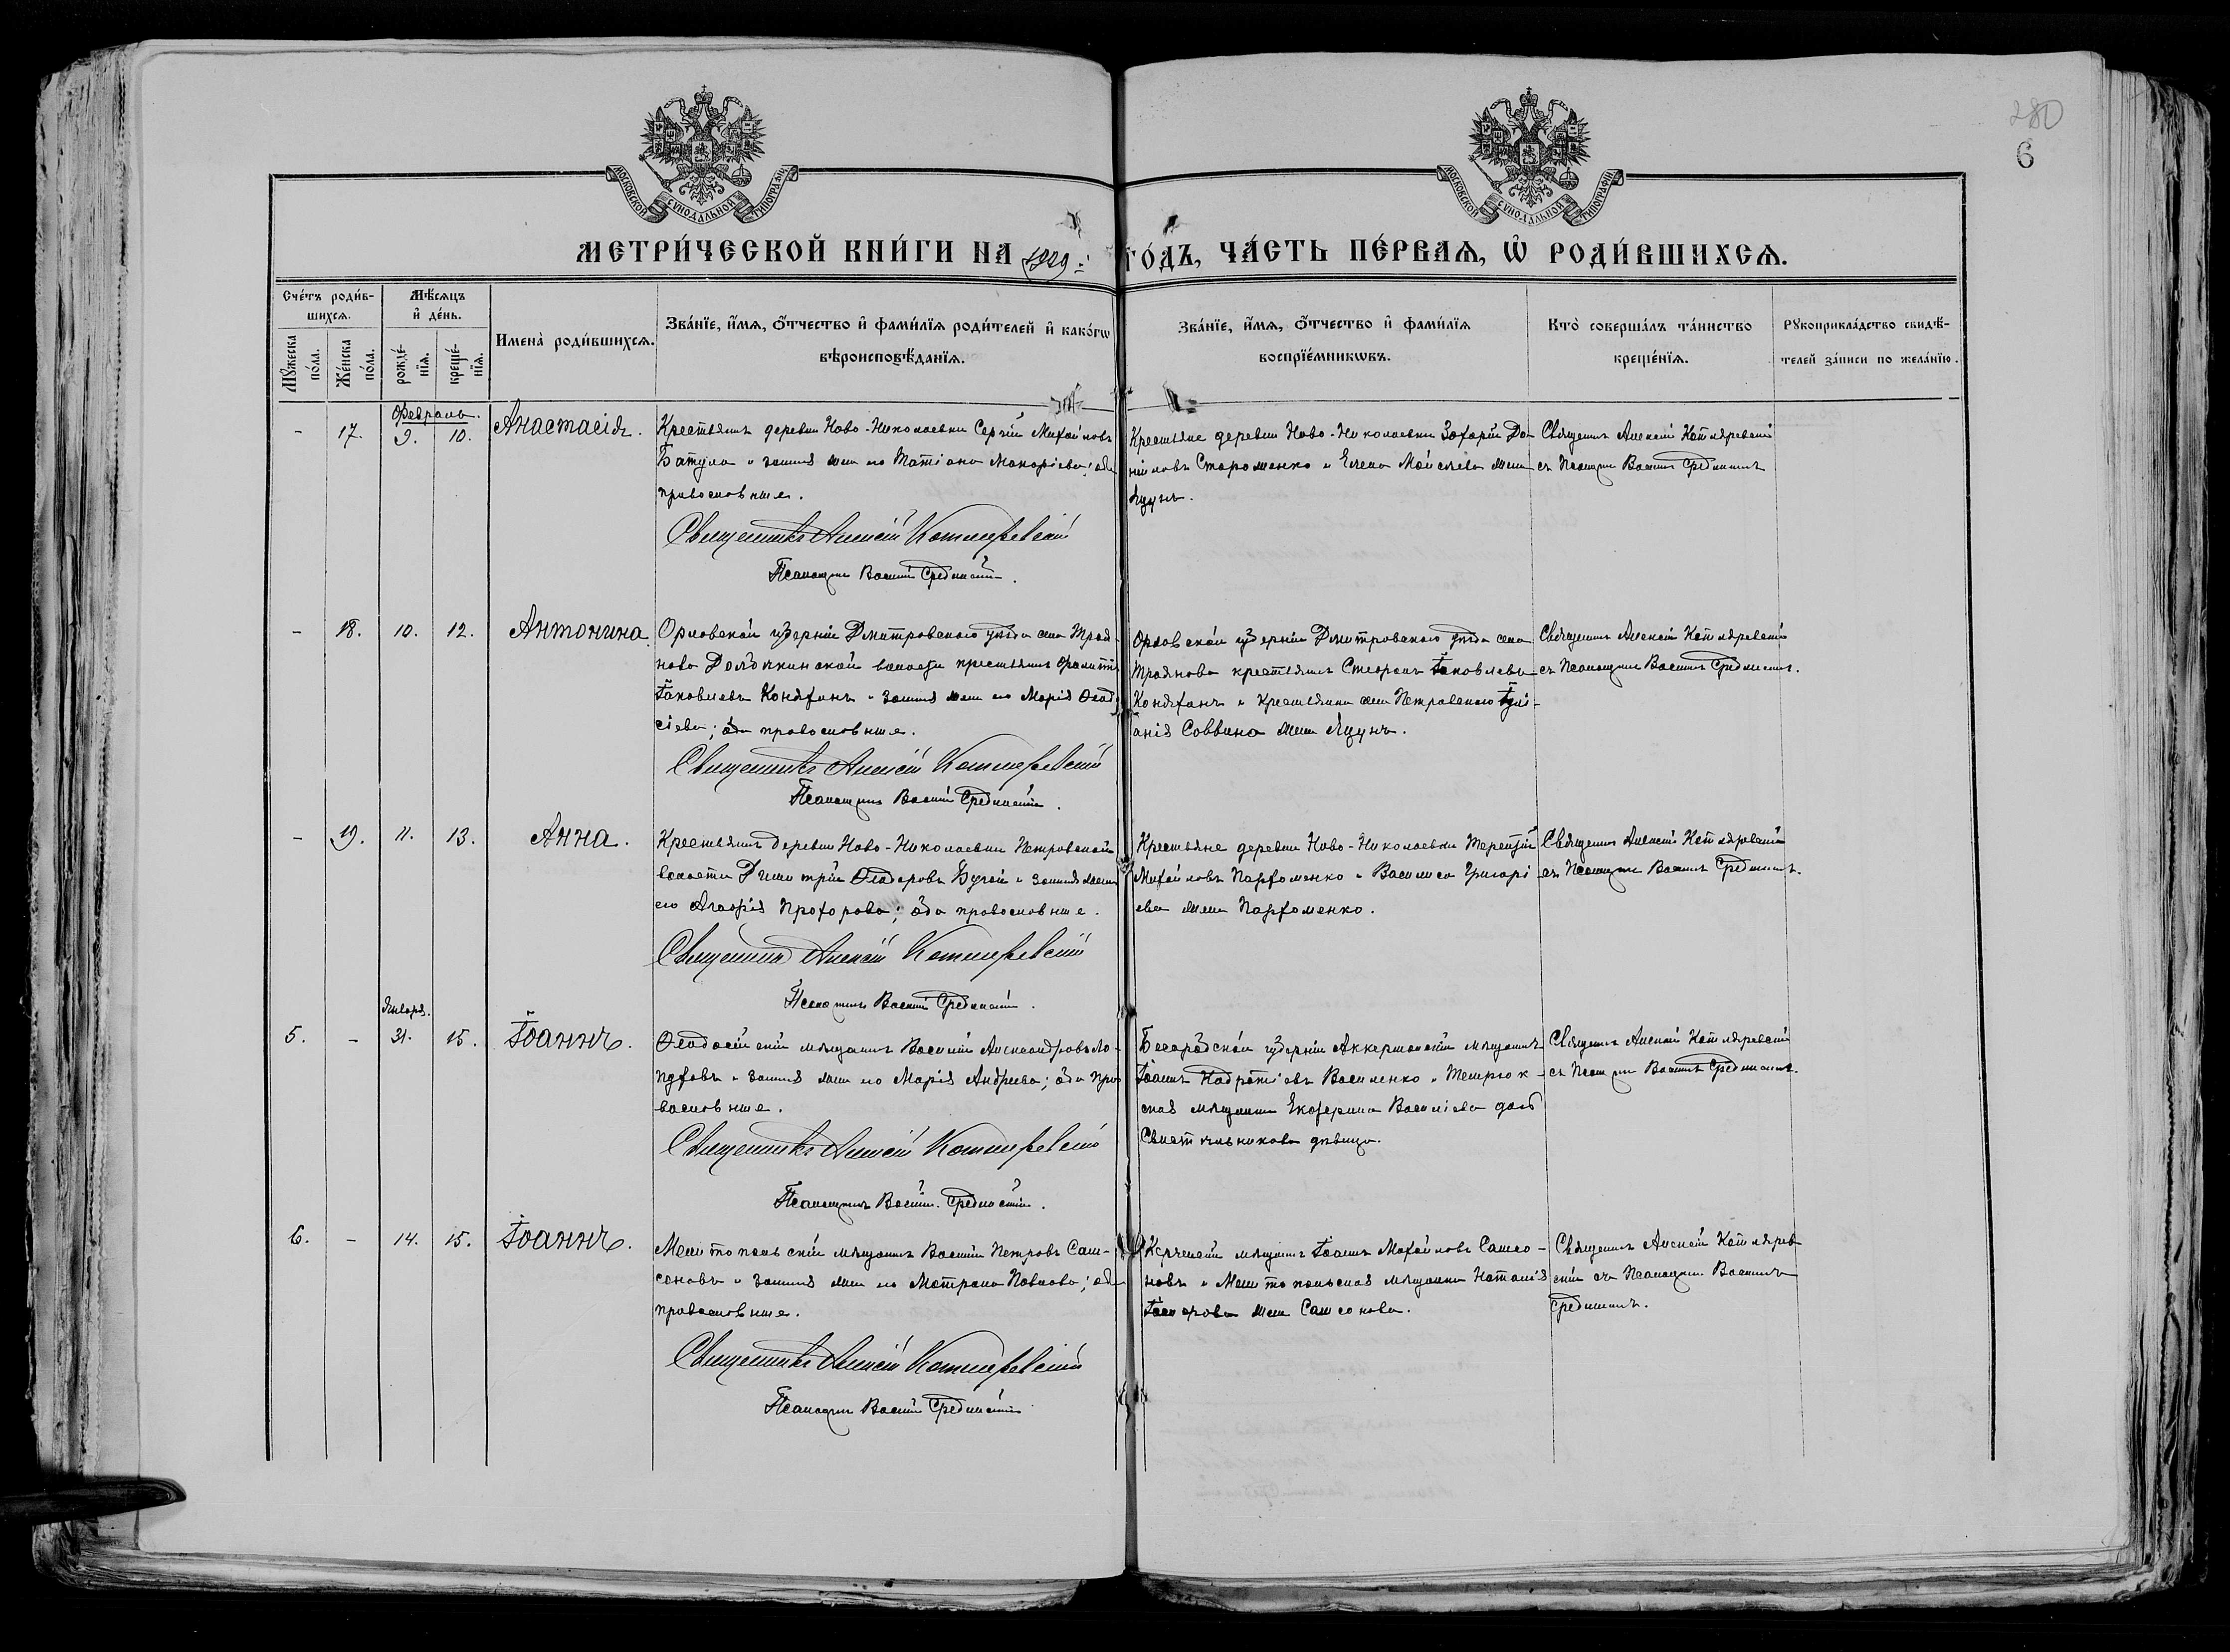 280
6
МОСКОВСКОЙ СѴНОДАЛЬНОЙ ТИПОГРАФІИ
МОСКОВСКОЙ СѴНОДАЛЬНОЙ ТИПОГРАФІИ
МЕТРИ́ЧЕСКОЙ КНИ́ГИ НА ГО́ДЪ, ЧА́СТЬ ПЕ́РВАѦ, Ѡ҆ РОДИ́ВШИХСѦ.
Сче́тъ роди́в-
шихсѧ.
Мѣ́сѧцъ
и҆ де́нь.
Имена̀ роди́вшихсѧ.
Зва́нїе, и҆́мѧ, ѻ҆́тчество и҆ фами́лїѧ роди́телей и҆ како́гѡ
вѣроисповѣ́данїѧ.
Зва́нїе, и҆́мѧ, ѻ҆́тчество и҆ фами́лїѧ
воспрїе́мникѡвъ.
Кто̀ соверша́лъ та́инство
креще́нїѧ.
Рꙋкоприкла́дство свидѣ́-
телей за́писи по жела́нїю.
Мꙋ́жеска
по́ла.
Же́нска
по́ла.
рожде́-
нїѧ.
креще́-
нїѧ.
Февраль.
- 17. 9. 10. Анастасія.
Крестьянинъ деревни Ново-Николаевки Сергій Михайловъ
Батула и законная жена его Татіана Макаріева; оба
православные.
Священникъ Алексій Котляревскій
Псаломщикъ Василій Срединскій.
Крестьяне деревни Ново-Николаевки Захарій Да-
ніиловъ Стороженко и Елена Моисеева жена
Яцунъ.
Священникъ Алексій Котляревскій
съ Псаломщикомъ Василіемъ Срединскимъ
- 18. 10. 12. Антонина.
Орловской губерніи Дмитровскаго уѣзда села Троя-
нова волости крестьянинъ
Іаковлевъ Коняхинъ и законная жена его Марія Ѳеодо
сіева; оба православные.
Священникъ Алексій Котляревскій
Псаломщикъ Василій Срединскій.
Орловской губерніи Дмитровскаго уѣзда села
Троянова крестьянинъ Стефанъ Іаковлевъ
и крестьянка села Петровскаго Іулі-
анія Саввина жена Яцунъ.
Священникъ Алексій Котляревскій
съ Псаломщикомъ Василіемъ Срединскимъ.
- 19. 11. 13. Анна.
Крестьянинъ деревни Ново-Николаевки Петровской
волости Димитрій Ѳеодоровъ Бугай и законная жена
его Агафія Прохорова; оба православные.
Священникъ Алексій Котляревскій
Псаломщикъ Василій Срединскій.
Крестьяне деревни Ново-Николаевки Терентій
Михайловъ Пархоменко и Василиса Григорі
ева жена Пархоменко.
Священникъ Алексій Котляревскій
съ Псаломщикомъ Василіемъ Срединскимъ.
Января.
5. - 31. 15. Іоаннъ.
Ѳеодосійскій мѣщанинъ Василій Александровъ Ло-
и законная жена его Марія Андреева; оба пра
вославные.
Священникъ Алексій Котляревскій
Псаломщикъ Василій Срединскій.
губерніи Аккерманскій мѣщанинъ
Іоаннъ Василенко и Темрюк-
ская мѣщанка Екатерина Василіева дочь
Свѣтильникова дѣвица.
Священникъ Алексій Котляревскій
съ Псаломщикомъ Василіемъ Срединскимъ.
6. - 14. 15. Іоаннъ.
Мелитопольскій мѣщанинъ Василій Петровъ Сам-
соновъ и законная жена его Матрона Павлова; оба
православные.
Священникъ Алексій Котляревскій
Псаломщикъ Василій Срединскій
Керченскій мѣщанинъ Іоаннъ Михайловъ Самсо-
новъ и Мелитопольская мѣщанка Наталія
жена Самсонова.
Священникъ Алексій Котлярев
скій съ Псаломщикомъ Василіемъ
Срединскимъ.